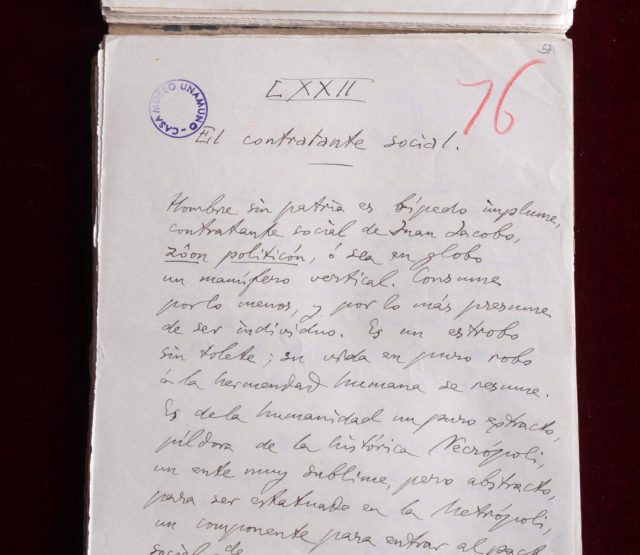 57
CASA MUSEO UNAMUNO
LXXII
76
El contratante social.
Hombre sin patria es bípedo implume,
contratante social de Juan Jacobo,
zôon politicón, ó sea en globo
un mamífero vertical. Consume
por lo menos, y por lo más presume
de ser individuo. Es un estrobo
sin tolete; su vida en puro robo
á la hermendad humana se resume.
Es de la humanidad un puro extracto,
píldora de la histórica Necrópoli,
un ente muy sublime, pero abstracto,
para ser estatuado en la Metrópoli,
un componente para entrar al pact
social de